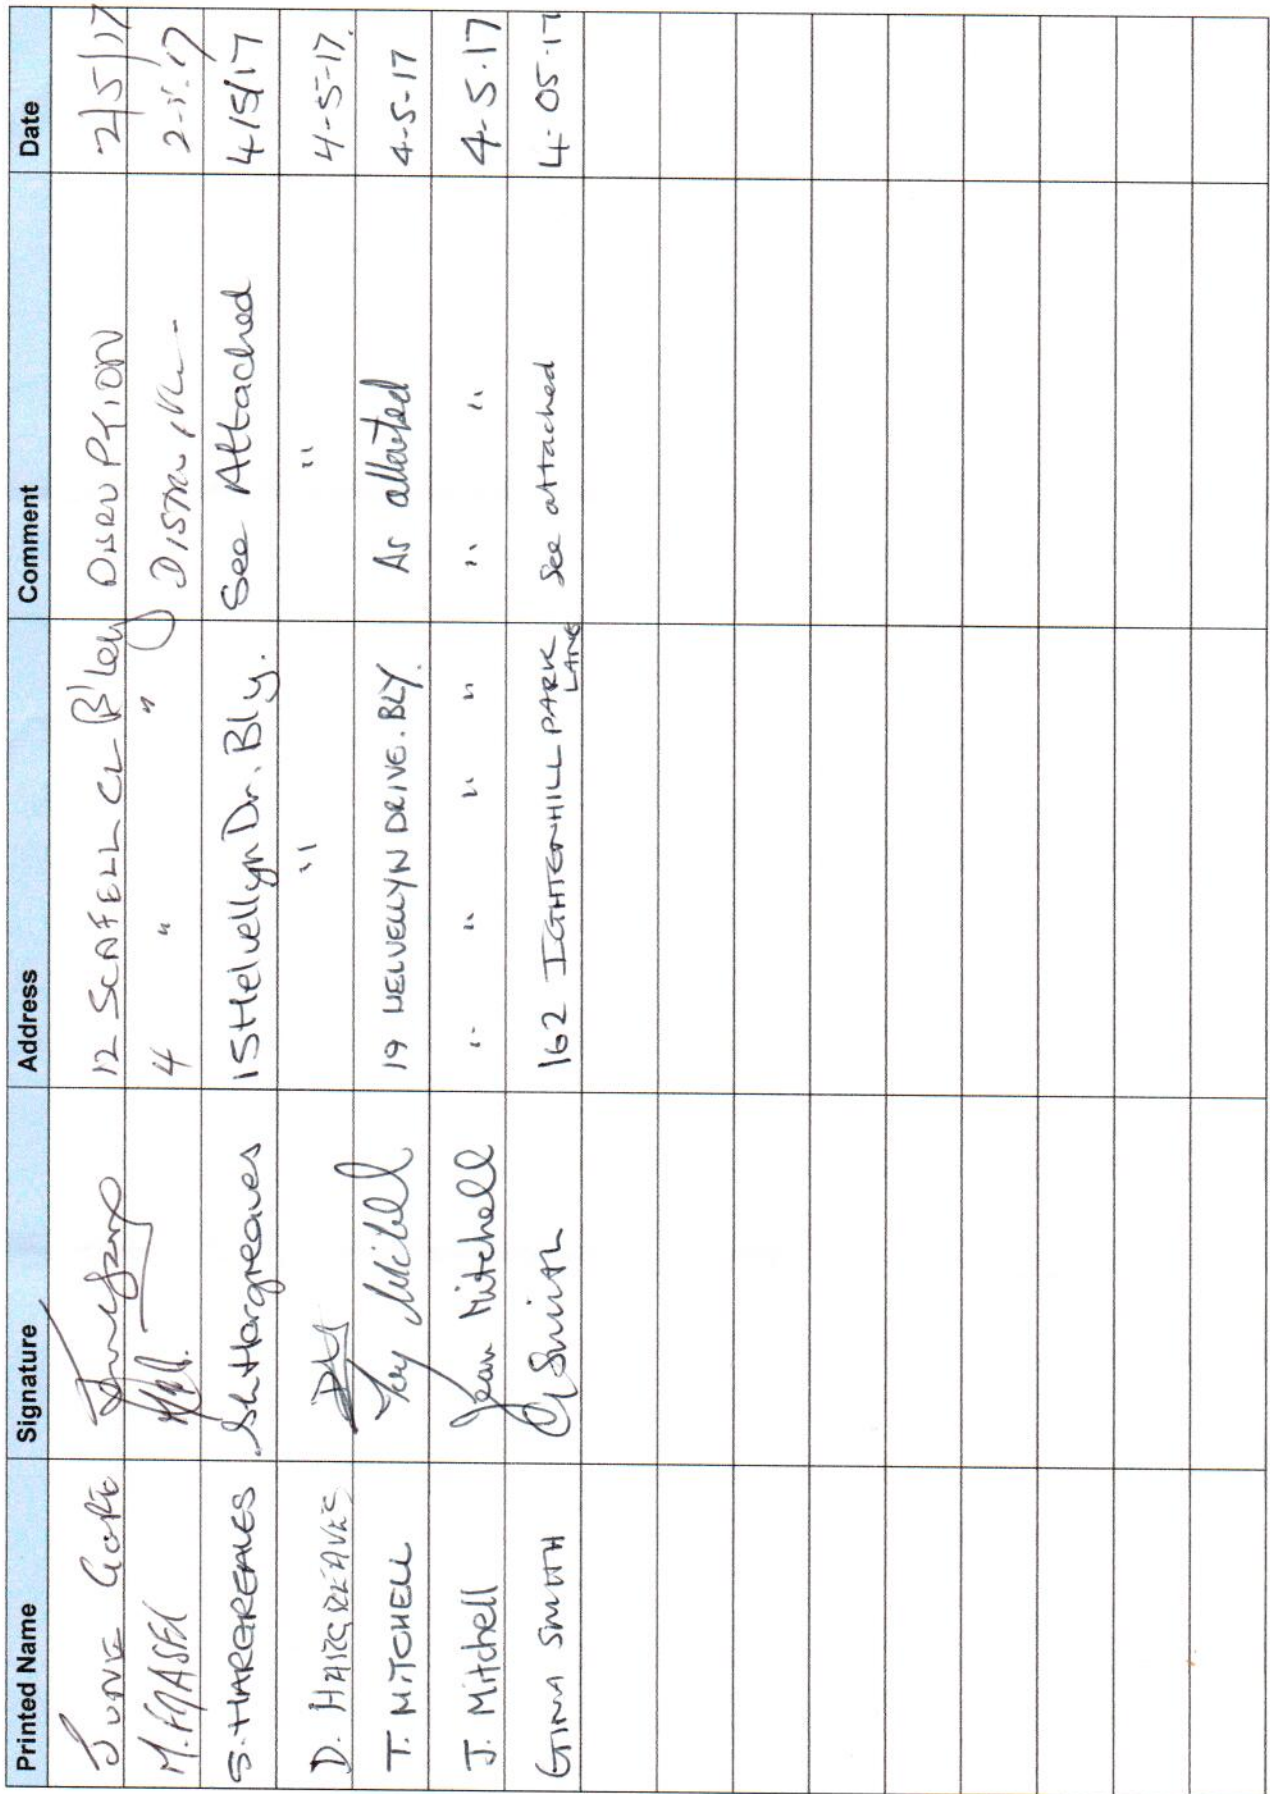 Printed Name Signature Address Comment Date
JUNE 12 SCAFELL CL B'ley DISRUPTION 2/5/17
M. 4 " " 2-5-17
S. HARGREAVES S Hargreaves 15 Helvellyn Dr. Bly. See Attached 4/5/17
D. HARGREAVES DH " " 4-5-17.
T. MITCHELL 19 HELVELLYN DRIVE. BLY. As attached 4-5-17
J. Mitchell Jean Mitchell " " " " " " 4-5-17
GINA SMITH G Smith 162 IGHTENHILL PARK LANE See attached 4-05-17